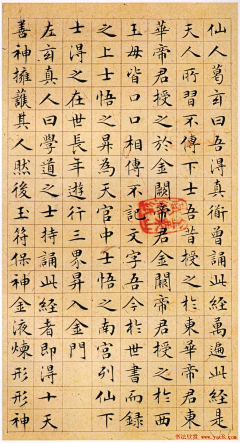 仙人葛玄曰吾得真衜曾誦此經萬遍此經是
天人所習不傳下士吾昔授之於東華帝君東
華帝君授之於金闕帝君金闕帝君授之於西
王母皆口口相傳不記文字吾今於世書而録
之上士悟之昇為天官中士悟之南宮列仙下
士得之在世長年遊行三界昇入金門
左玄真人曰學道之士持誦此經者即得十天
善神擁護其人然後玉符保神金液煉形形神
书法欣赏
www.yac8.com